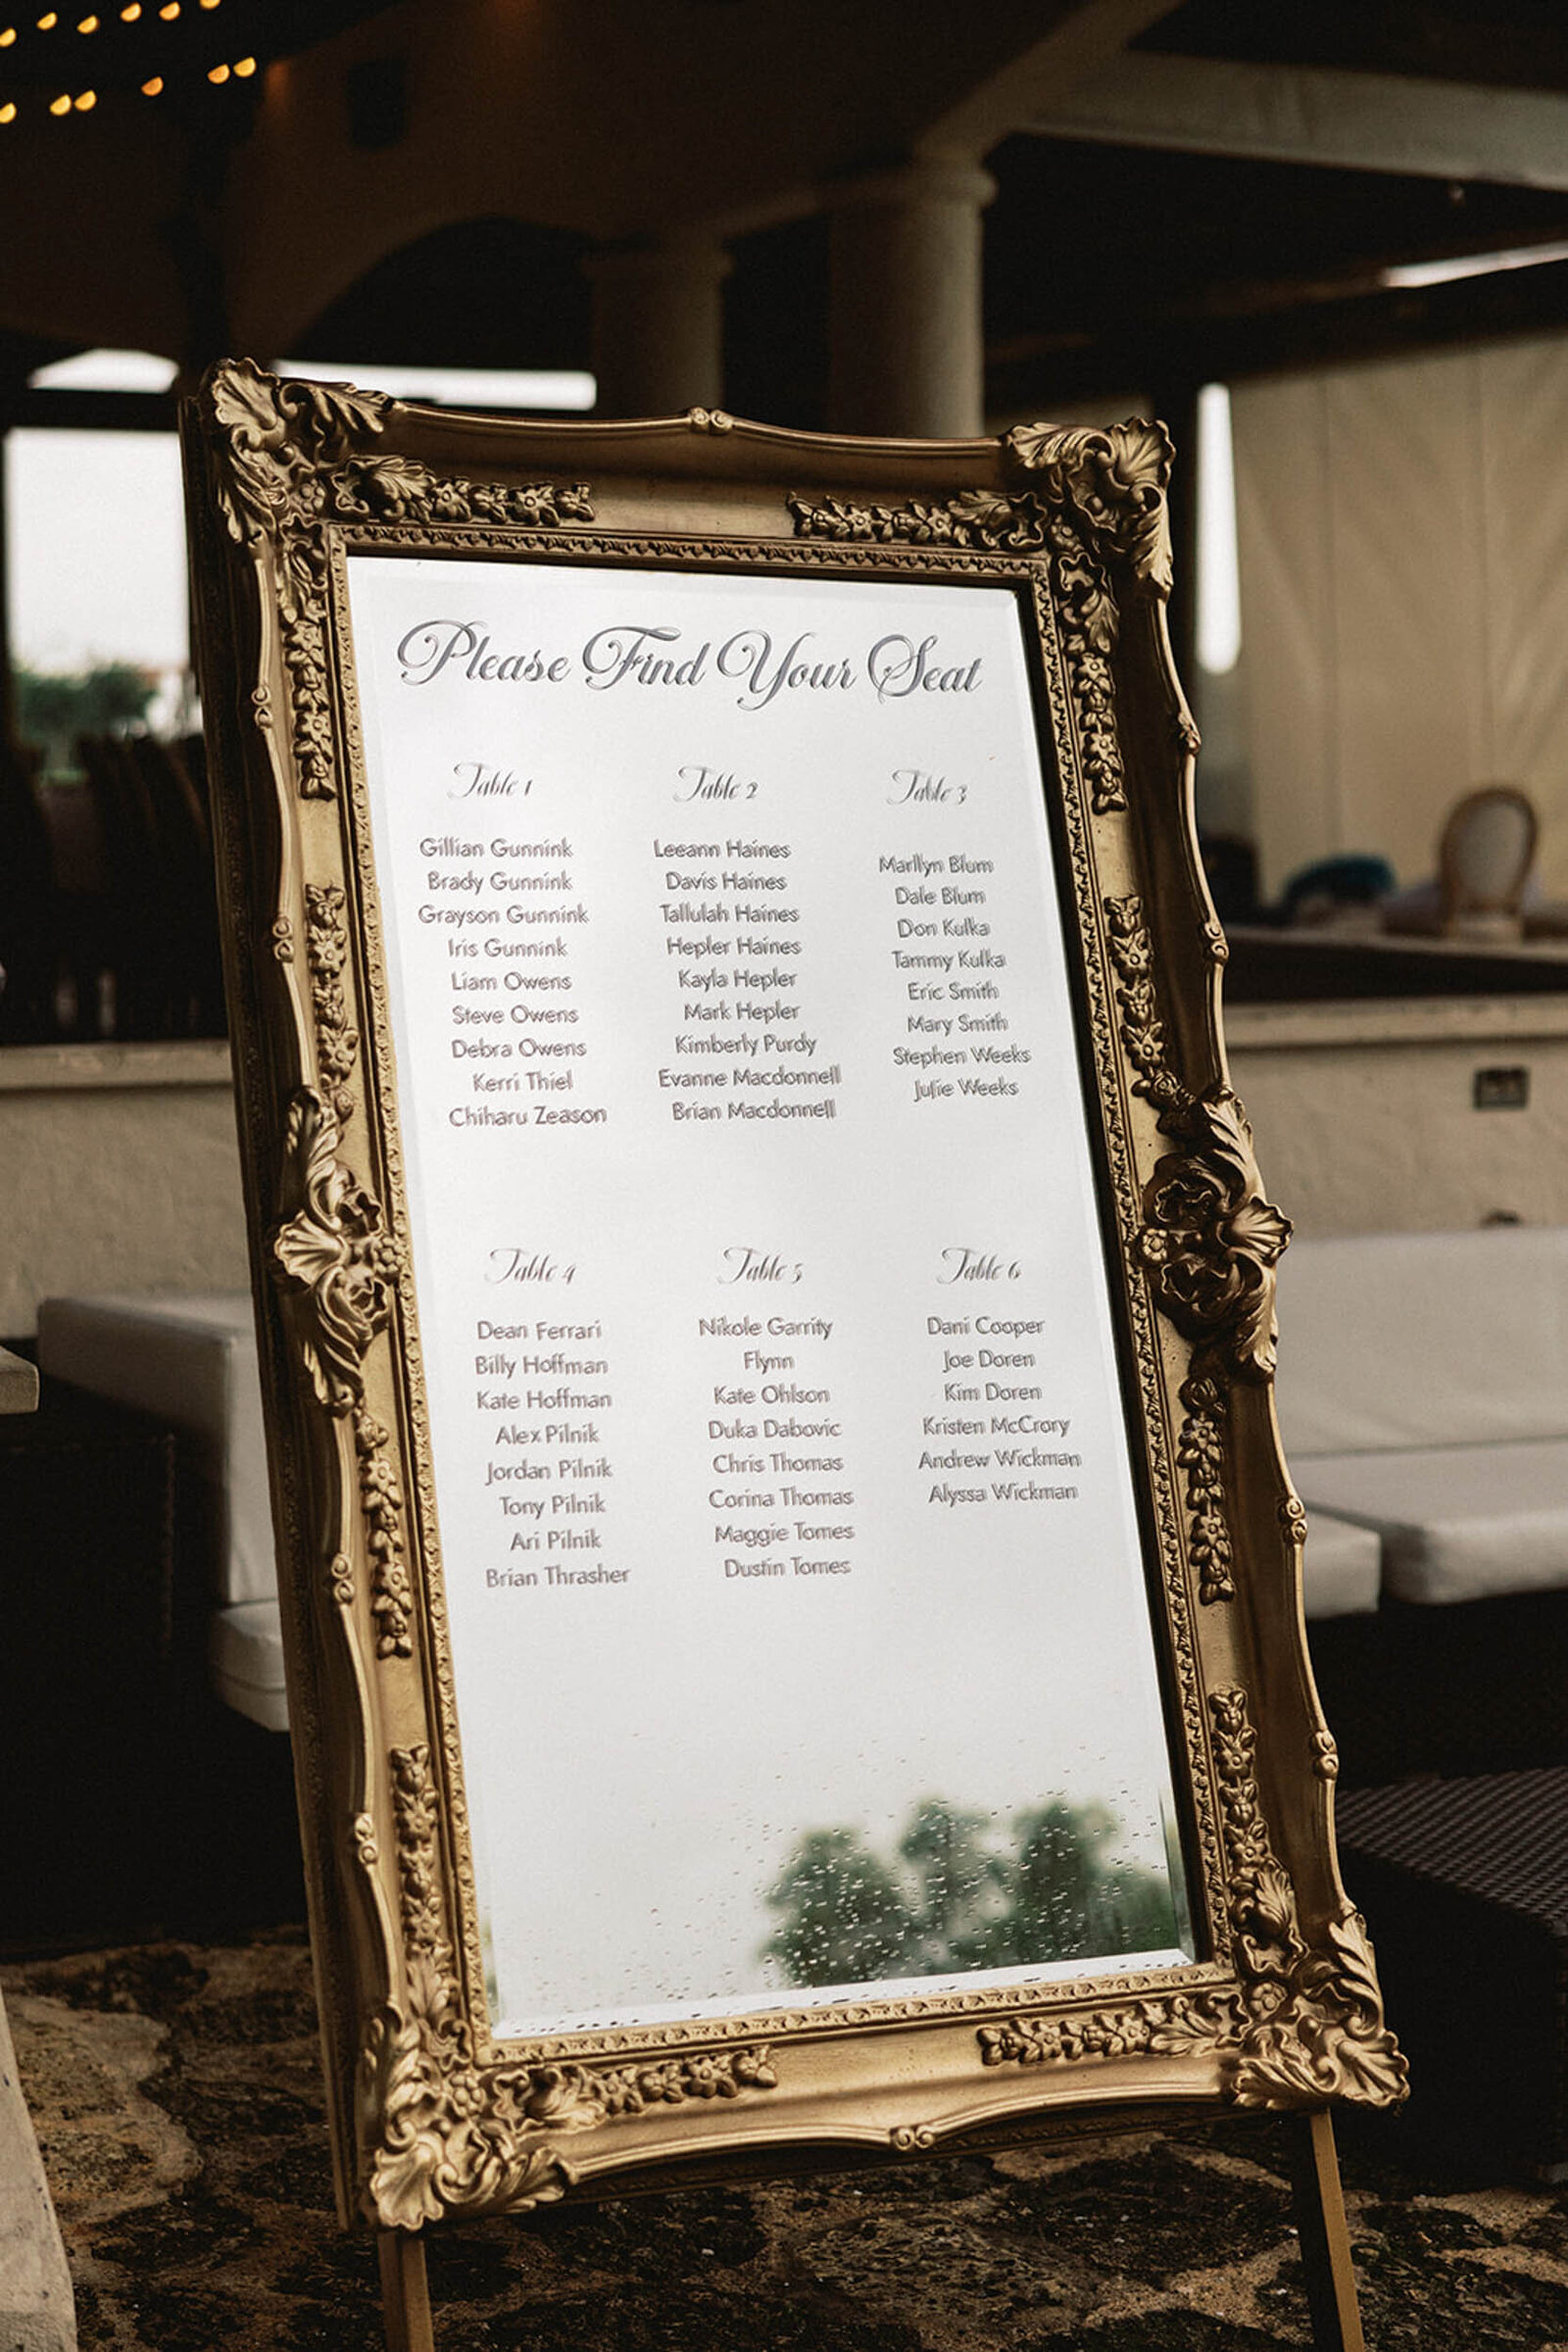 Please Find Your Seat
Table 1
Gillian Gunnink
Brady Gunnink
Grayson Gunnink
Iris Gunnink
Liam Owens
Steve Owens
Debra Owens
Kerri Thiel
Chiharu Zeason
Table 2
Leeann Haines
Davis Haines
Tallulah Haines
Hepler Haines
Kayla Hepler
Mark Hepler
Kimberly Purdy
Evanne Macdonnell
Brian Macdonnell
Table 3
Marllyn Blum
Dale Blum
Don Kulka
Tammy Kulka
Eric Smith
Mary Smith
Stephen Weeks
Julie Weeks
Table 4
Dean Ferrari
Billy Hoffman
Kate Hoffman
Alex Pilnik
Jordan Pilnik
Tony Pilnik
Ari Pilnik
Brian Thrasher
Table 5
Nikole Garrity
Flynn
Kate Ohlson
Duka Dabovic
Chris Thomas
Corina Thomas
Maggie Tomes
Dustin Tomes
Table 6
Dani Cooper
Joe Doren
Kim Doren
Kristen McCrory
Andrew Wickman
Alyssa Wickman